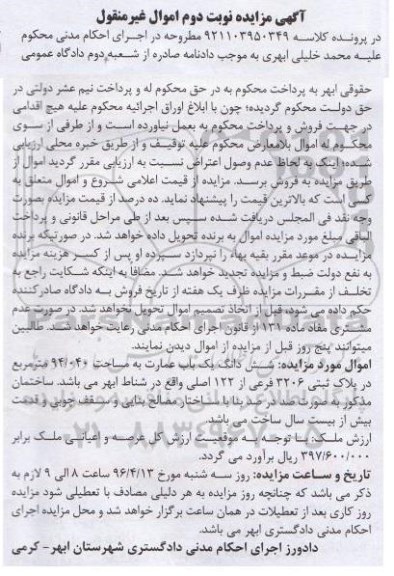 آگهی مزایده نوبت دوم اموال غیرمنقول
در پرونده کلاسه ۹۲۱۱۰۳۹۵۰۳۴۹ مطروحه در اجرای احکام مدنی محکوم
علیه محمد خلیلی ابهری به موجب دادنامه صادره از شعبه دوم دادگاه عمومی
حقوقی ابهر به پرداخت محکوم به در حق محکوم له و پرداخت نیم عشر دولتی در
حق دولت محکوم گردیده؛ چون با ابلاغ اوراق اجرائیه محکوم علیه هیچ اقدامی
در جهت فروش و پرداخت محکوم به بعمل نیاورده است و از طرفی از سوی
محکوم له اموال بلامعارض محکوم علیه توقیف و از طریق خبره محلی ارزیابی
شده؛ اینک به لحاظ عدم وصول اعتراض نسبت به ارزیابی مقرر گردید اموال از
طریق مزایده به فروش برسد. مزایده از قیمت اعلامی شروع و اموال متعلق به
کسی است که بالاترین قیمت را پیشنهاد نماید. ده درصد از قیمت مزایده بصورت
وجه نقد فی المجلس دریافت شده سپس بعد از طی مراحل قانونی و پرداخت
الباقی مبلغ مورد مزایده اموال به برنده تحویل داده خواهد شد. در صورتیکه برنده
مزایده در موعد مقرر بقیه بهاء را نپردازد سپرده او پس از کسر هزینه مزایده
به نفع دولت ضبط و مزایده تجدید خواهد شد. مضافا به اینکه شکایت راجع به
تخلف از مقررات مزایده ظرف یک هفته از تاریخ فروش به دادگاه صادرکننده
حکم داده می شود، قبل از اتخاذ تصمیم اموال تحویل نخواهد شد. در صورت عدم
مشتری مفاد ماده ۱۳۱ از قانون اجرای احکام مدنی رعایت خواهد شد. طالبین
میتوانند پنج روز قبل از مزایده از اموال دیدن نمایند.
اموال مورد مزایده: شش دانگ یک باب عمارت به مساحت ۹۴/۰۴۰ مترمربع
در پلاک ثبتی ۳۲۰۶ فرعی از ۱۲۲ اصلی واقع در شناط ابهر می باشد. ساختمان
مذکور به صورت صد در صد بنا با ساختار مصالح بنایی و سقف چوبی و قدمت
بیش از بیست سال ساخت می باشد.
ارزش ملک: با توجه به موقعیت ارزش کل عرصه و اعیانی ملک برابر
۳۹۷/۶۰۰/۰۰۰ ریال برآورد می گردد.
تاریخ و ساعت مزایده: روز سه شنبه مورخ ۹۶/۴/۱۳ ساعت ۸ الی ۹ لازم به
ذکر می باشد که چنانچه روز مزایده به هر دلیلی مصادف با تعطیلی شود مزایده
روز کاری بعد از تعطیلات در همان ساعت برگزار خواهد شد و محل مزایده اجرای
احکام مدنی دادگستری ابهر می باشد.
دادورز اجرای احکام مدنی دادگستری شهرستان ابهر- کرمی